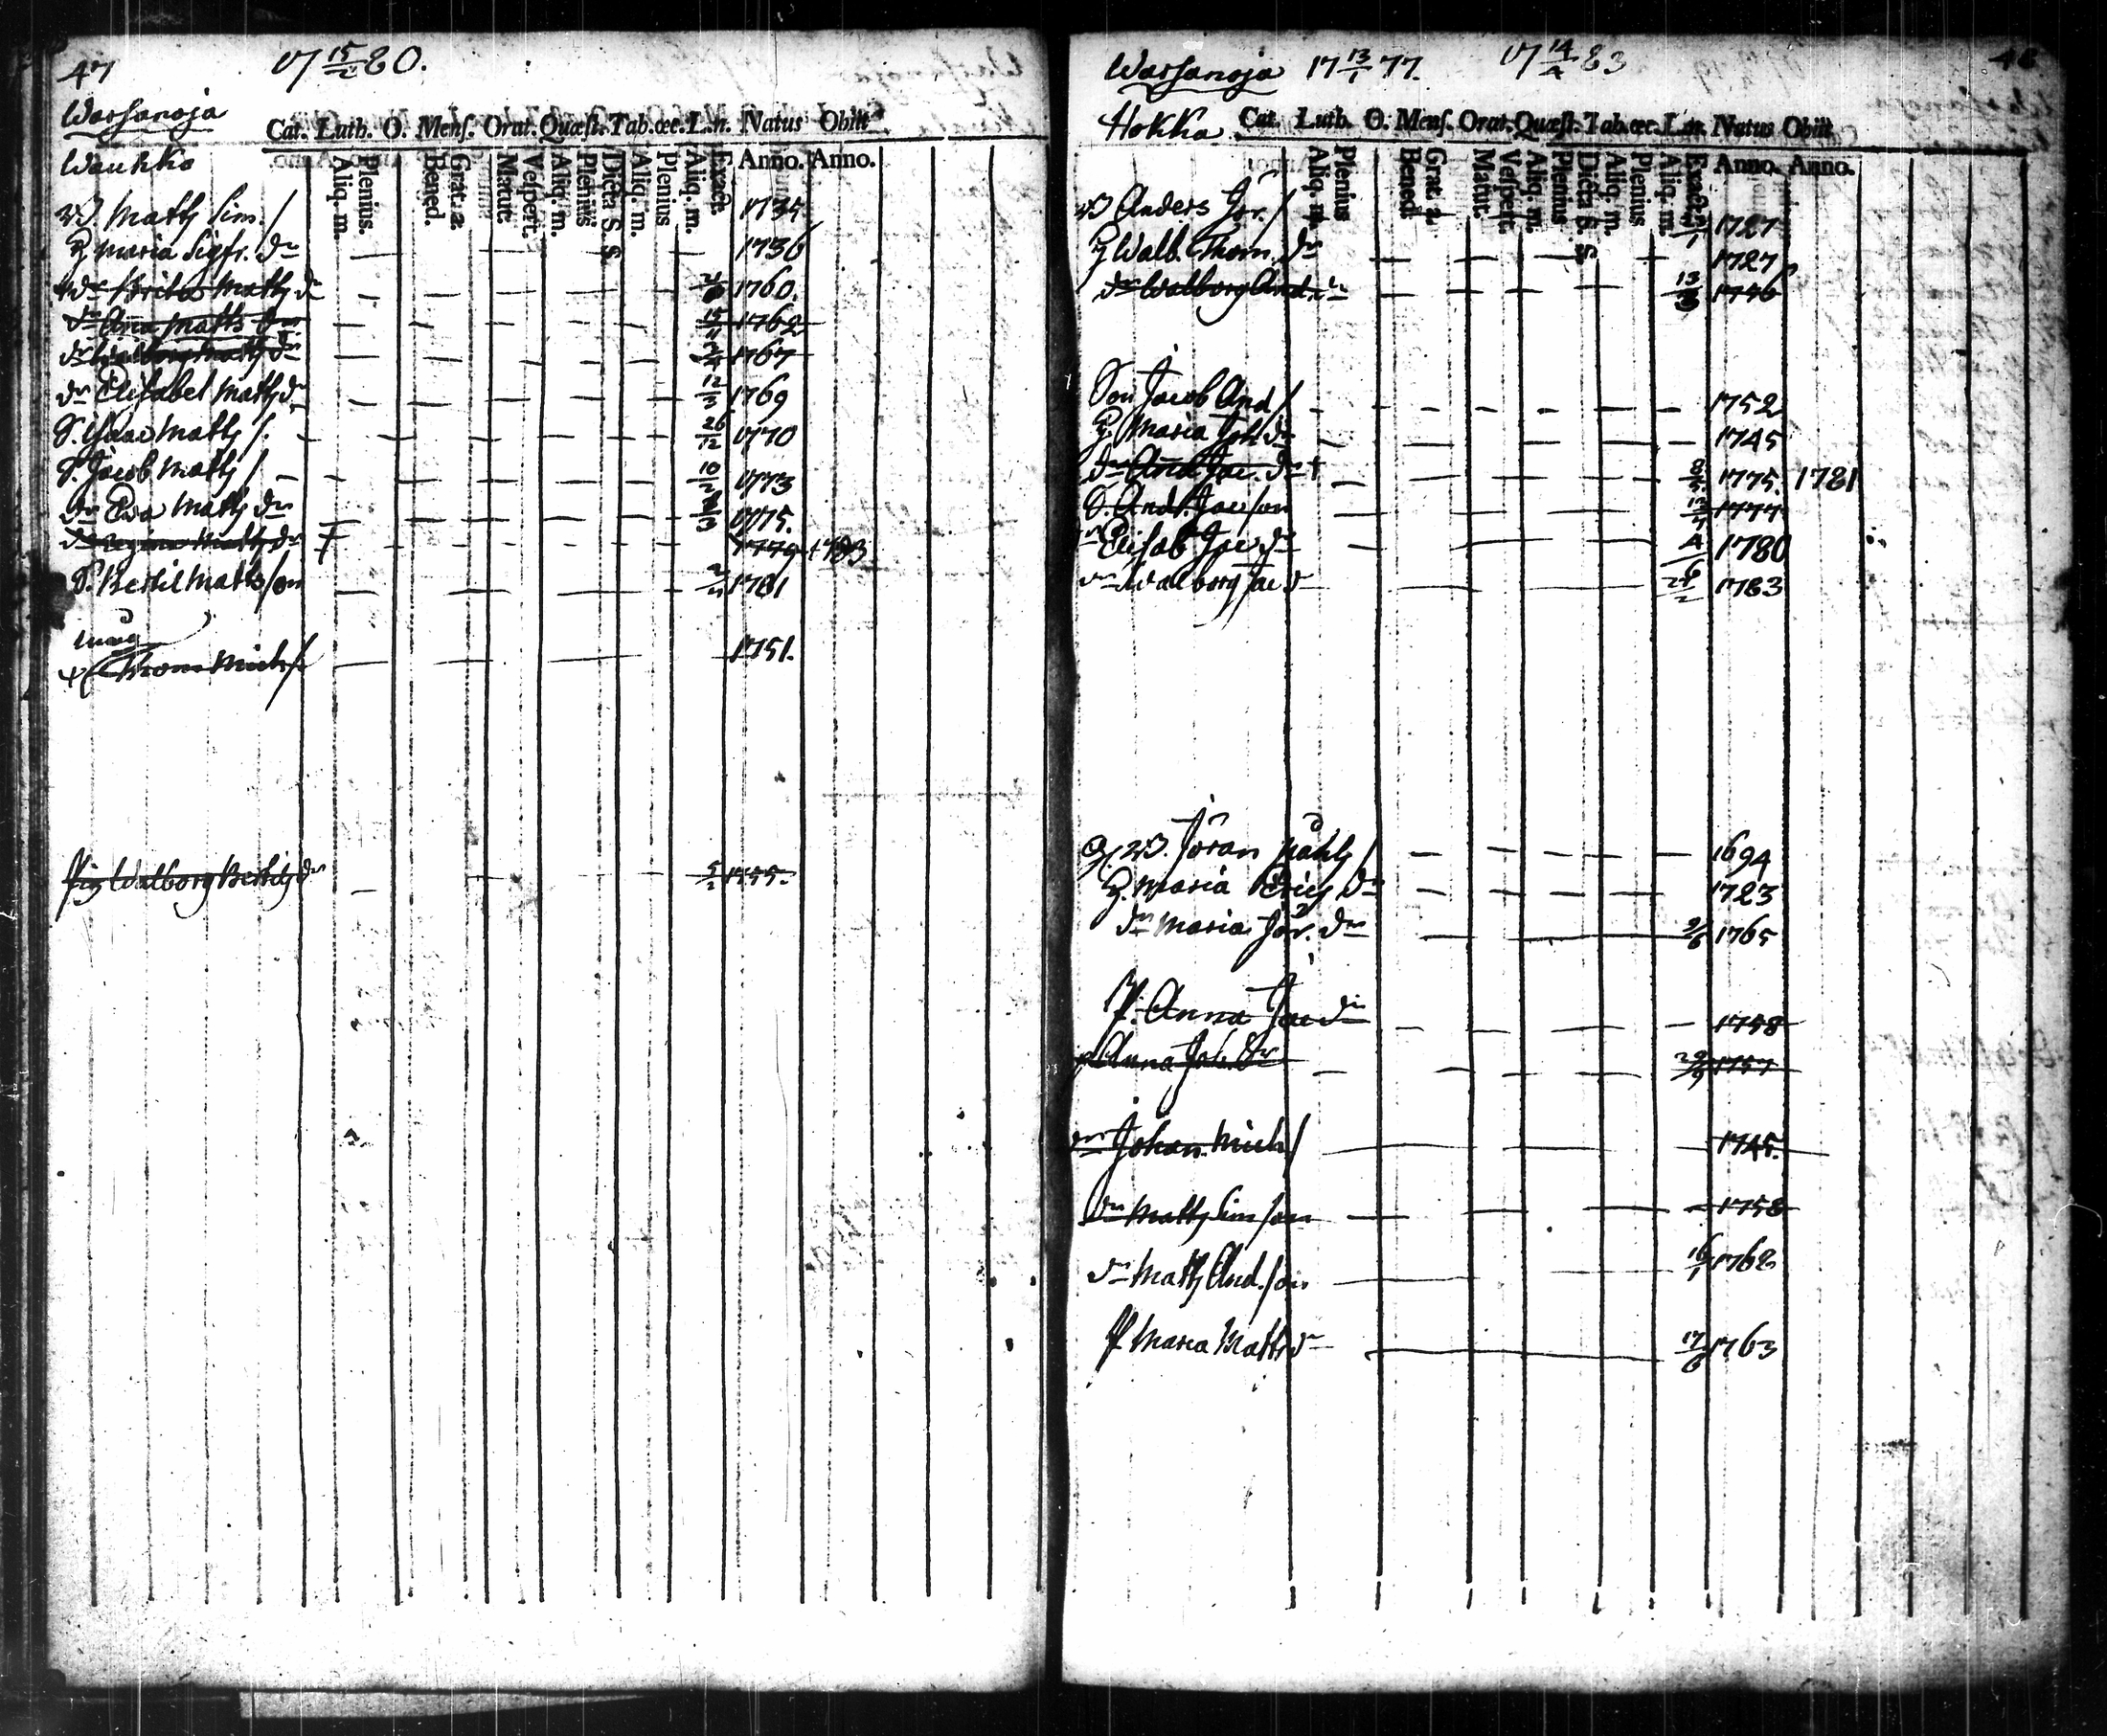 47 17 15/2 80.
Warsanoja
Cat. Luth. O. Mens. Orat. Quæst. Tab.œc. L.n. Natus Obiit
Waukko
Aliq. m. Plenius. Bened. Grat. æ. Matut. Vespert. Aliq. m. Plenius Dicta S. S. Aliq. m. Plenius Aliq. m. Exact. Anno. Anno.
W Matts Sim. / 1735
H Maria Sigfr. dr 1736
dr Brita Matts dr 1760.
dr Anna Matts dr 15 1762
dr Walborg Matts dr 1767
dr Elisabet Matts dr 12/3 1769
S. Isaac Matts /. 26/12 1770
S. Jacob Matts / 10 1773
dr Eva Matts dr 1775.
dr Regina Matts dr † 1779 + 1783
S. Bertil Matts son 1781
måg
Thom. Mich / 1751.
Pig Walborg Bertils dr 5/2 1755.
Warsanoja 17 13/1 77. 17 14/2 83 48
Hokka Cat. Luth. O. Mens. Orat. Quæst. Tab.œc. L.n. Natus Obiit
Aliq. m. Plenius Bened. Grat. æ. Matut. Vespert. Aliq. m. Plenius Dicta S. S. Aliq. m. Plenius Aliq. m. Exact. Anno. Anno.
W Anders Jör. / 1727
H Walb. Thom. dr 1727
dr Walborg And. dr 13/3 1746
Son Jacob And / 1752
H. Maria Joh. dr 1745
dr Anna Jac. dr † 8 1775. 1781
S. And. Jac son 1777
dr Elisab Jac dr 1780
dr Walborg Jac d 1783
W. Jöran Påhls / 1694
H. Maria Erics dr 1723
dr Maria Jör. dr 9/6 1765
P. Anna Jac dr 1758
p Anna Joh. dr 1757
dr Johan Mich / 1745.
dr Matts Sim son 1758
dr Matts And. son 16/1 1762
P Maria Matts d 17/6 1763